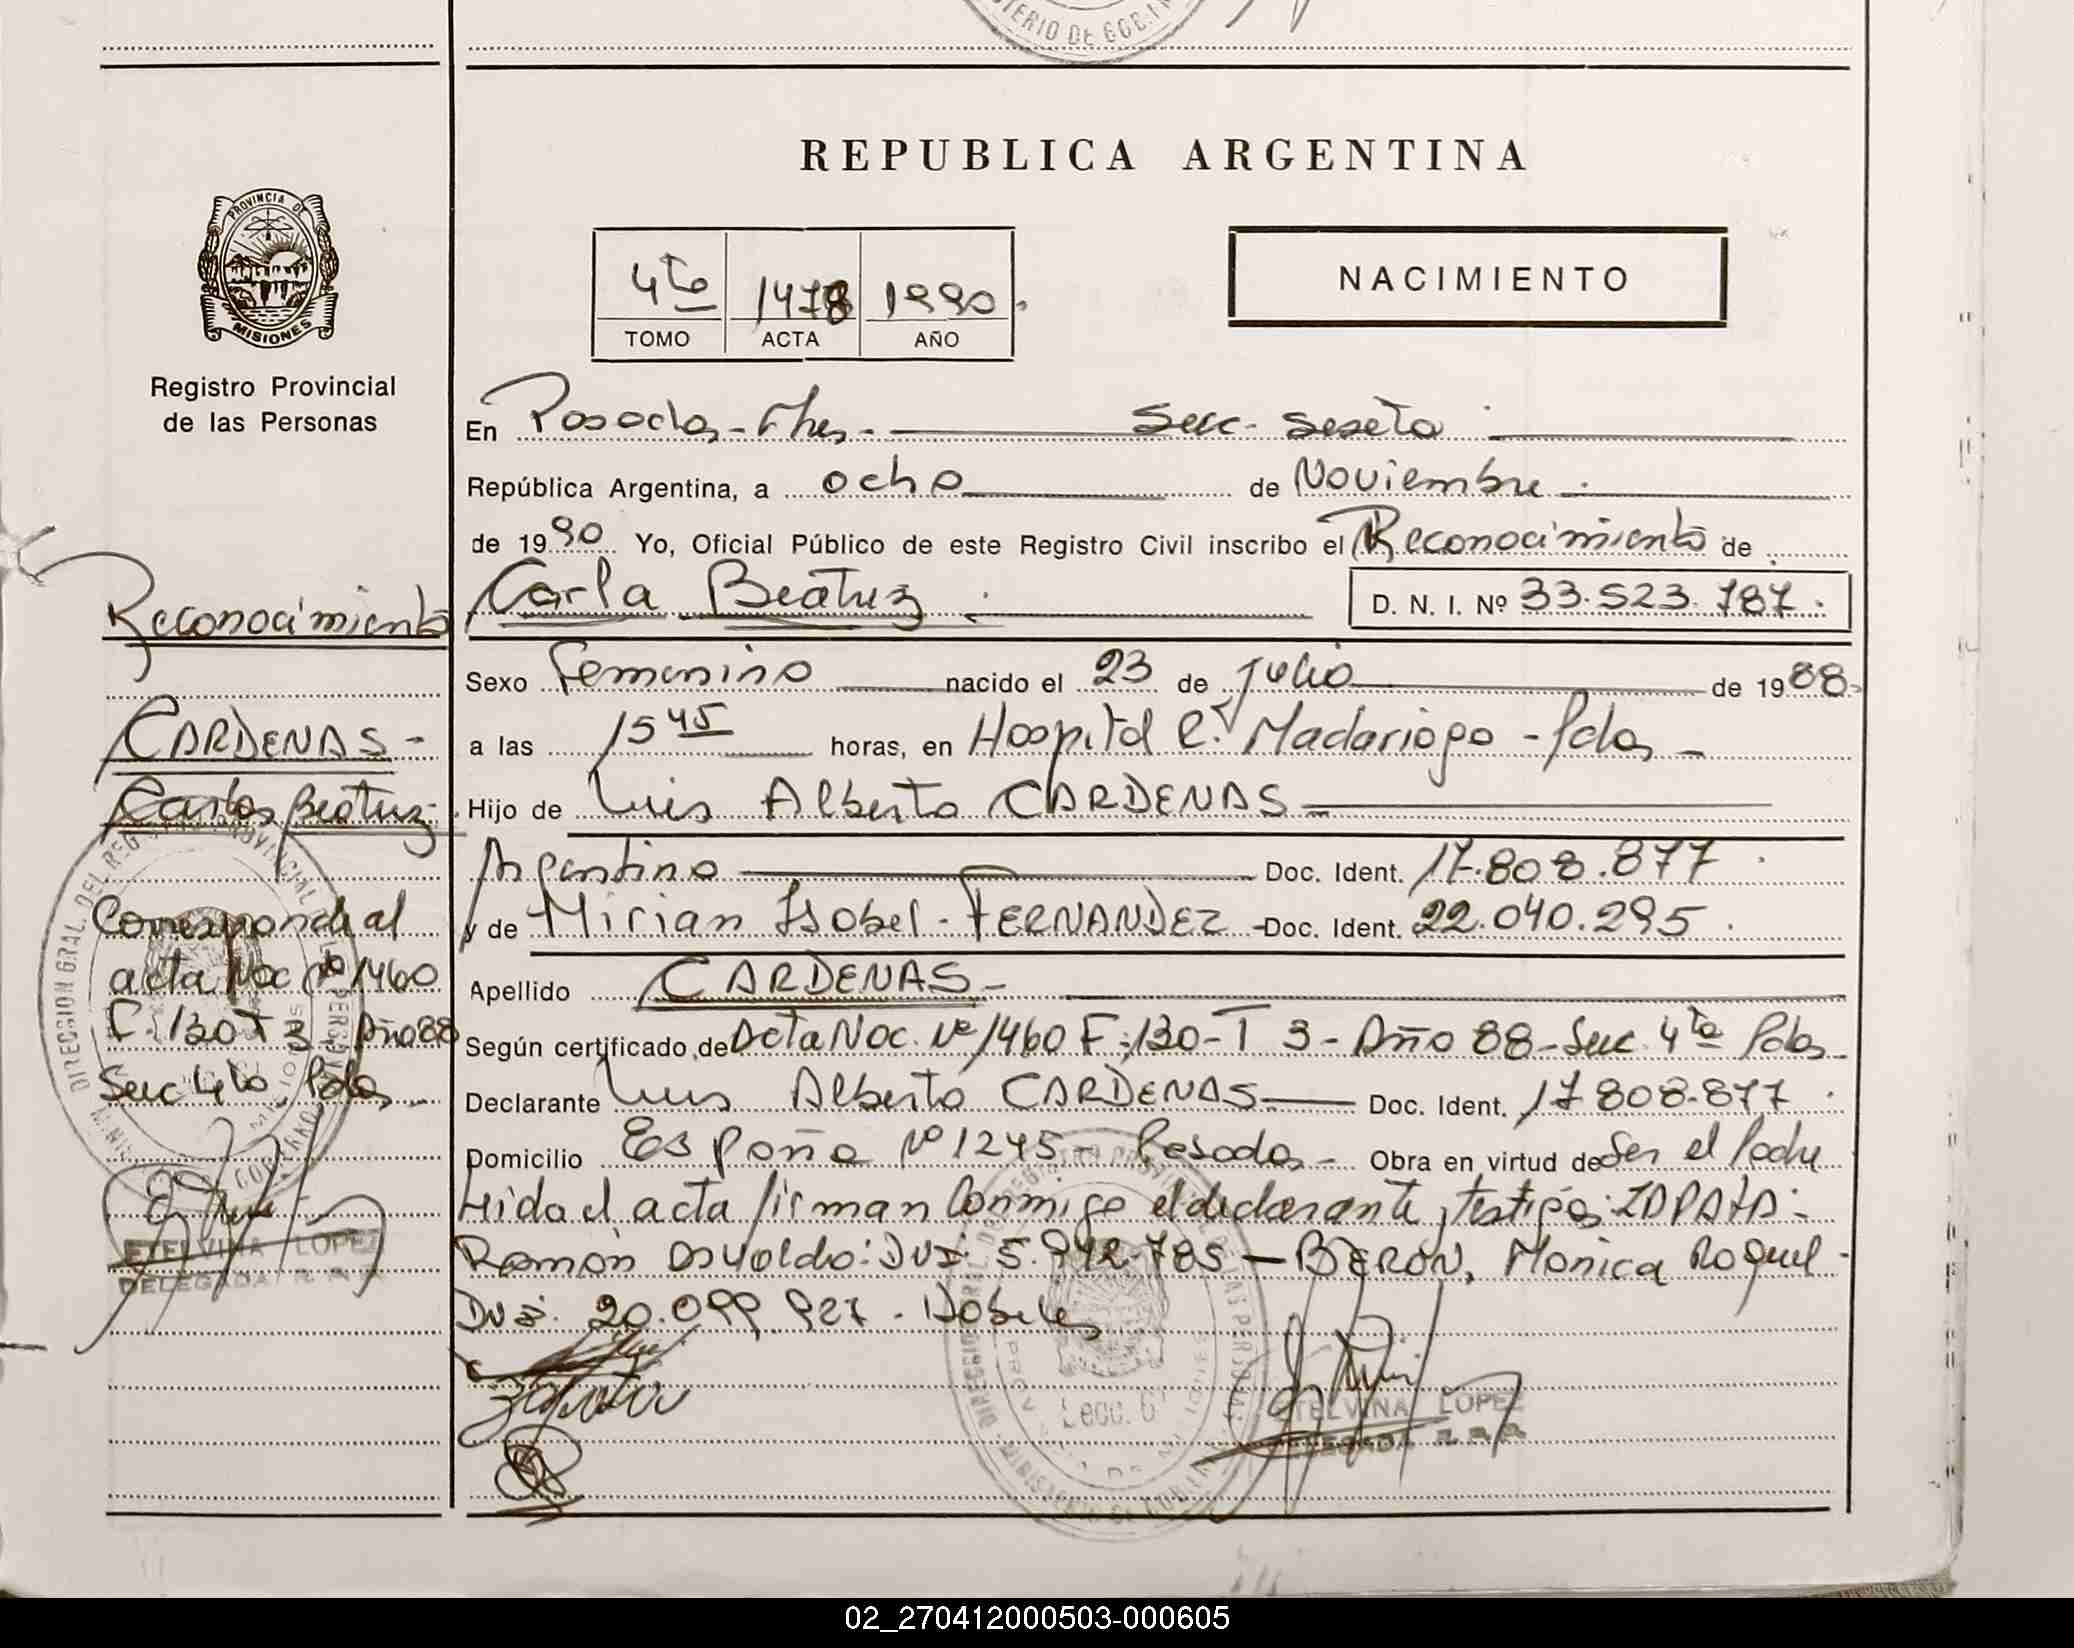 MINISTERIO DE GOBIERNO
REPUBLICA ARGENTINA
PROVINCIA DE
MISIONES
Registro Provincial
de las Personas
4to 1478 1990
TOMO ACTA AÑO
NACIMIENTO
En Posadas - Mnes. - Secc. Sexta
República Argentina, a ocho de Noviembre
de 1990 Yo, Oficial Público de este Registro Civil inscribo el Reconocimiento de
Carla Beatriz D. N. I. Nº 33.523.787
Sexo Femenino nacido el 23 de Julio de 1988
a las 15 45 horas, en Hospital R. Madariaga - Pdas
Hijo de Luis Alberto CARDENAS
Argentino Doc. Ident. 17.808.877
y de Mirian Isabel - FERNANDEZ - Doc. Ident. 22.040.295
Apellido CARDENAS
Según certificado de Acta Nac. Nº 1460 F: 130 - T 3 - Año 88 - Secc 4ta Pdas
Declarante Luis Alberto CARDENAS Doc. Ident. 17 808.877
Domicilio España Nº 1245 - Posadas - Obra en virtud de Ser el Padre
Leida el acta firman Conmigo el declarante y testigos: ZAPATA:
Ramón Osvaldo: DNI: 5.942.785 - BERON, Monica Raquel -
DNI: 20.099.927 - Habiles
Reconocimiento
CARDENAS -
Carla Beatriz
Corresponde al
acta Nac Nº 1460
F. 130 T 3 Año 88
Secc 4ta Pdas
DIRECCION GRAL. DEL REGISTRO PROVINCIAL
ETELVINA LOPEZ
DELEGADA R.P.P.
Secc. 6
ETELVINA LOPEZ
DELEGADA R.P.P.
02_270412000503-000605